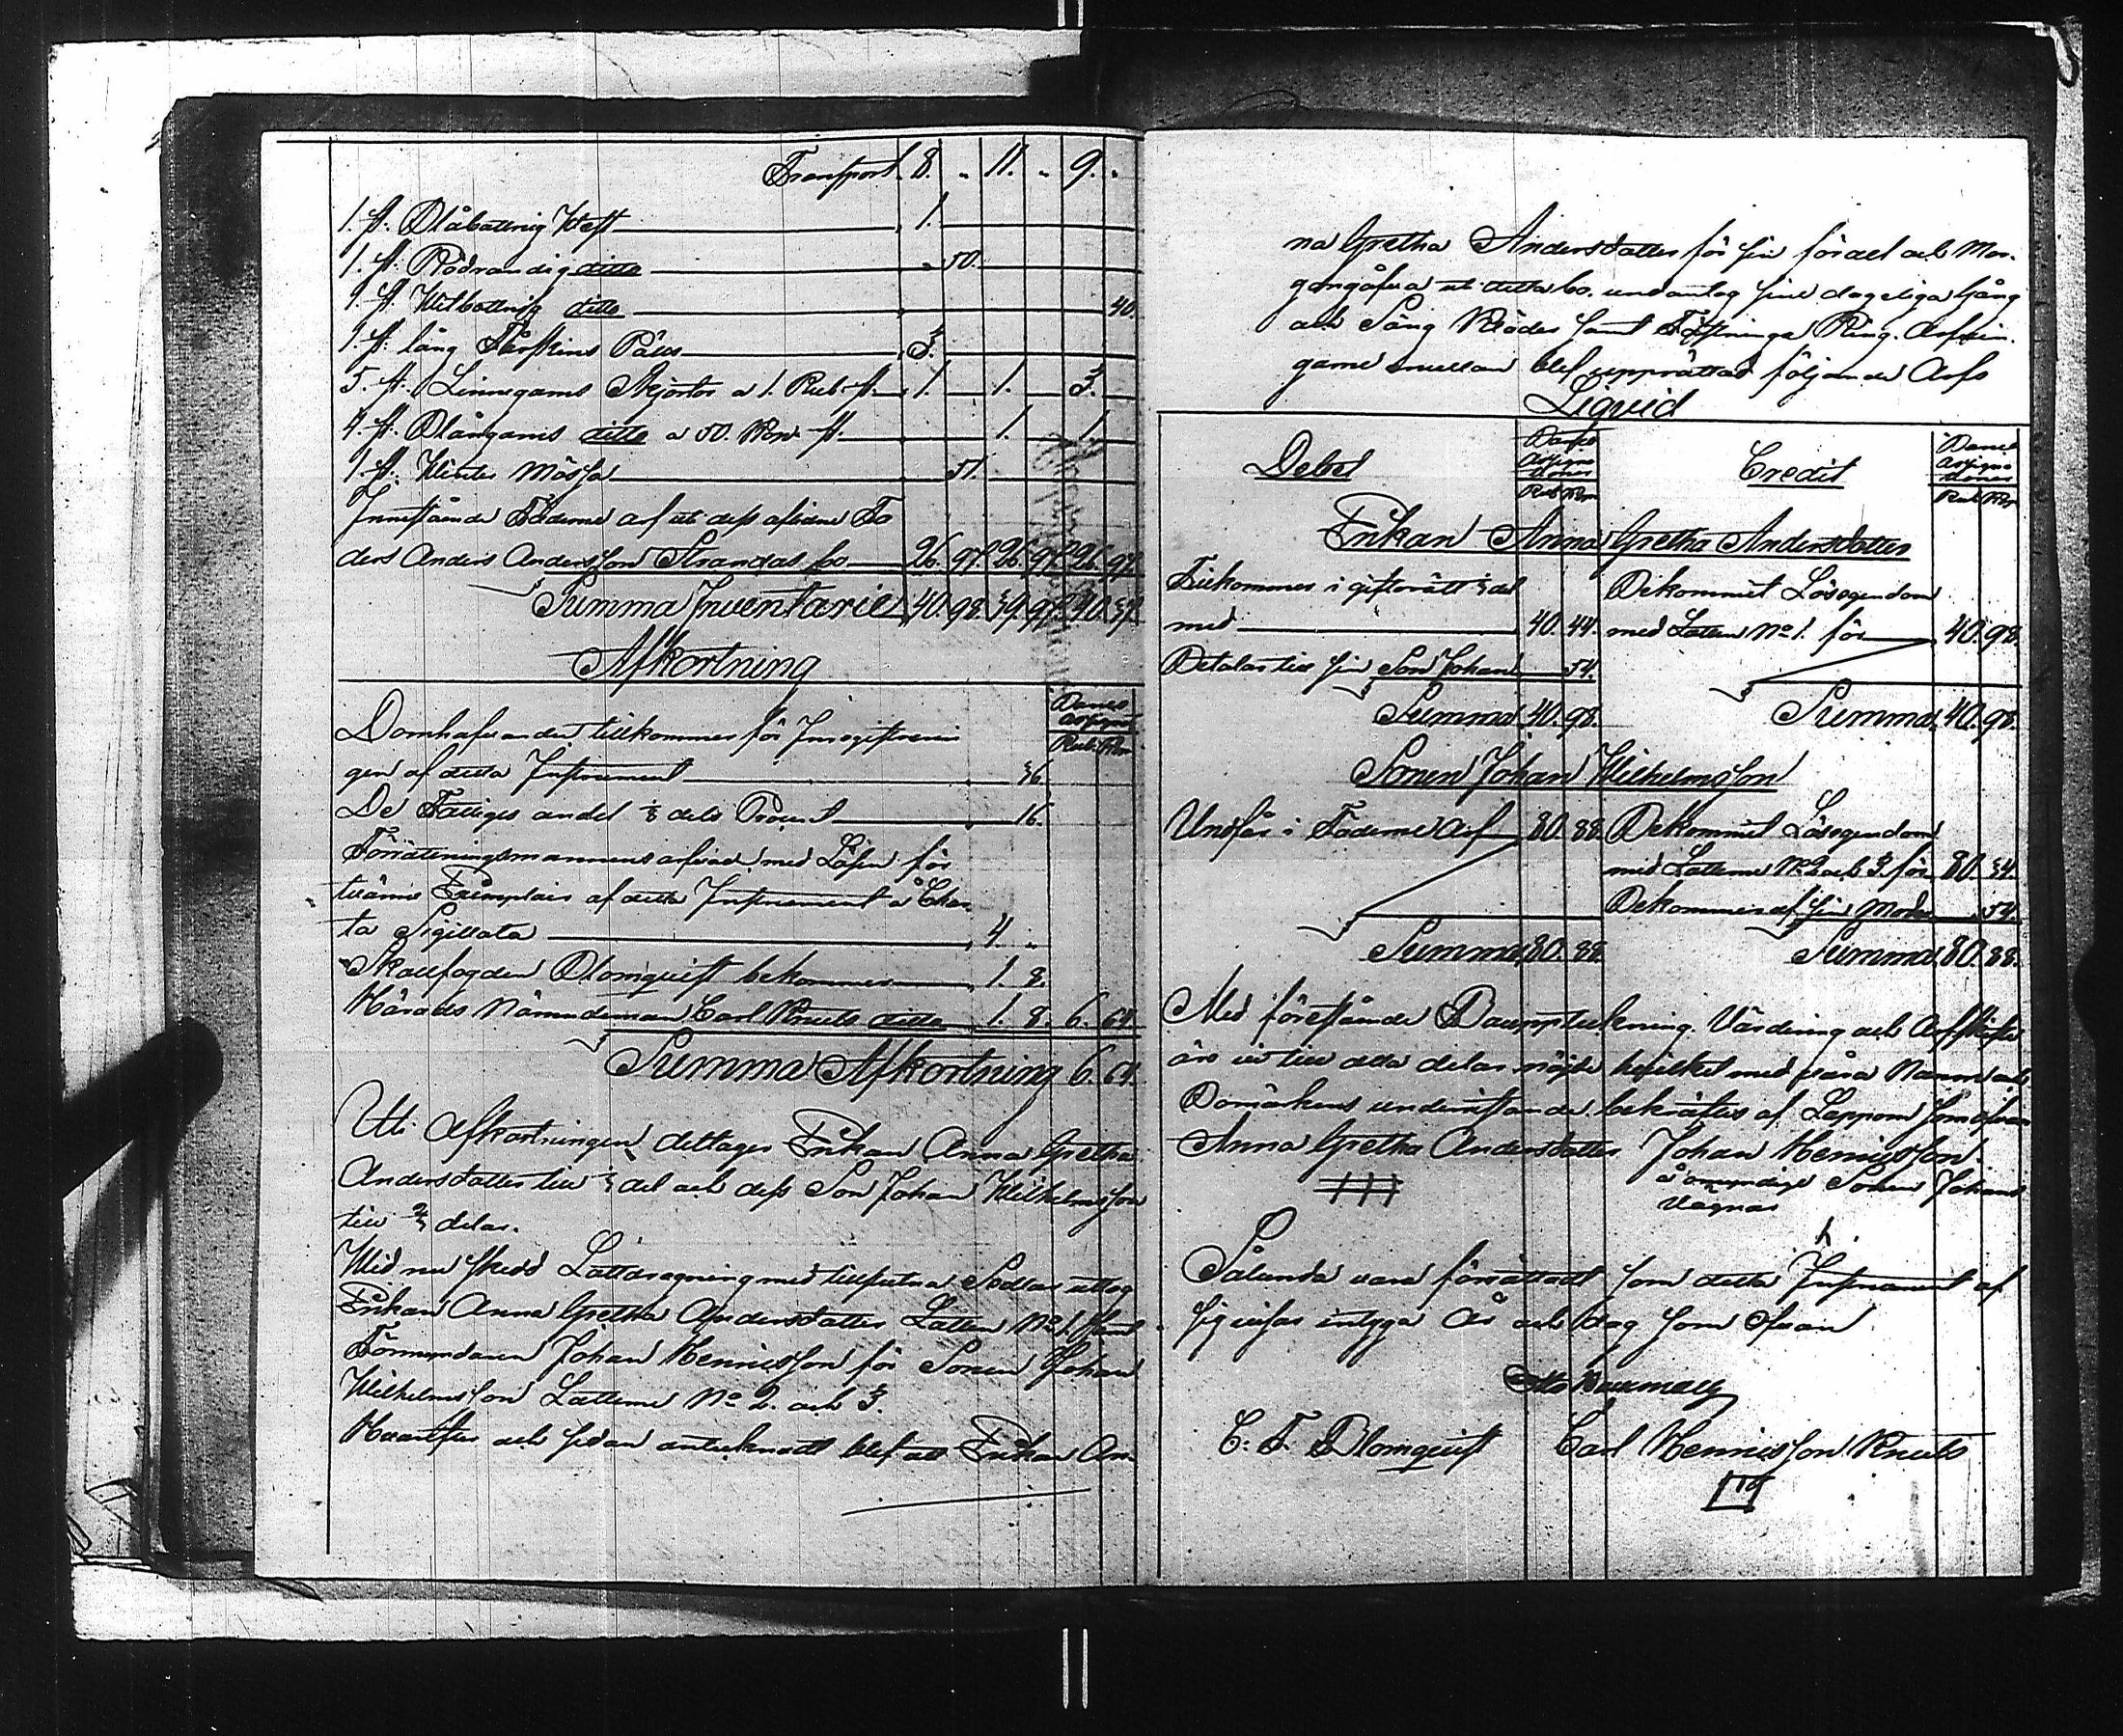 Transport 8. " 11. " 9. "
1. st. Blåbottnig West 1.
1. st. Rödrandig ditto " 50.
1. st. Hvitbottnig ditto 40.
1. st. lång Fårskins Päls 3.
5. st. Linnegarns Skjortor a 1. Rub. st. 1. 1. 3.
4. st. Blångarns ditto a 50. Kop. st. 1. 1.
1. st. Winter Mössa 51.
Innestående Fäderne arf uti dess aflidne Fa
ders Anders Andersson Strandas bo 26. 97. 26. 97. 26. 97.
Summa Inventarie 40. 98. 39. 97. 40. 37.
Afkortning
Banco
Assigna
Rub. Kop.
Domhafvanden tillkommer för Ingrosserin
gen af detta Instrument 36.
De Fattiges andel 1/8 dels Procent 16.
Förrättningsmannens arfvode med Lösen för
tvänne Exemplair af detta Instrument å Char
ta Sigillata 4. "
Skallfogden Blomquist bekommer 1. 8.
Härads Nämndeman Carl Knuts ditto 1. 8. 6. 64.
Summa Afkortning 6. 64.
Uti afkortningen deltager Enkan Anna Gretha
Andersdotter till 1/3 del och dess Son Johan Wilhelmsson
till 2/3 delar.
Wid nu skedd Lottdragning med tillslutna Sedlar uttog
Enkan Anna Gretha Andersdotter Lotten No 1. samt
Förmyndaren Johan Hennesson för Sonen Johan
Wilhelmsson Lotterne No 2. och 3.
Hvarefter och sedan antecknadt blef att Enkan An-
na Gretha Andersdotter för sin fördel och Mor-
gongåfva uti detta bo. undantog sine dageliga Gång
och Säng Kläder samt Fästninga Ring. Arfvin-
garne emellan blef upprättad följande Arfs
Liqvid
Debet Banco Assigna tioner Rub Kop Credit Banco Assigna tioner Rub Kop
Enkan Anna Gretha Andersdotter
Tillkommer i giftorätt 1/3 del Bekommit Lösegendom
med 40. 44. med Lotten No 1. för 40. 98.
Betalar till sin Son Johan 54.
Summa 40. 98. Summa 40. 98.
Sonen Johan Wilhelmsson
Undfår i Fäderne Arf 80. 88. Bekommit Lösegendom
med Lotterne No 2 och 3. för 80. 34.
Bekommer af sin Moder 54.
Summa 80. 88. Summa 80. 88.
Med föreståndе Bouppteckning. Värdering och Arfskifte
äro vi till alla delar nöjde hvilket med våra Namn och
Bomärkens underristande bekräftas af Lappom som ofvan
Anna Gretha Andersdotter Johan Hennesson.
å omyndige Sonen Johans
vägnar
Sålunda vara förrättadt som detta Instrument af
sig visar intyga År och dag som Ofvan
C. F. Blomquist Carl Hennesson Knuts